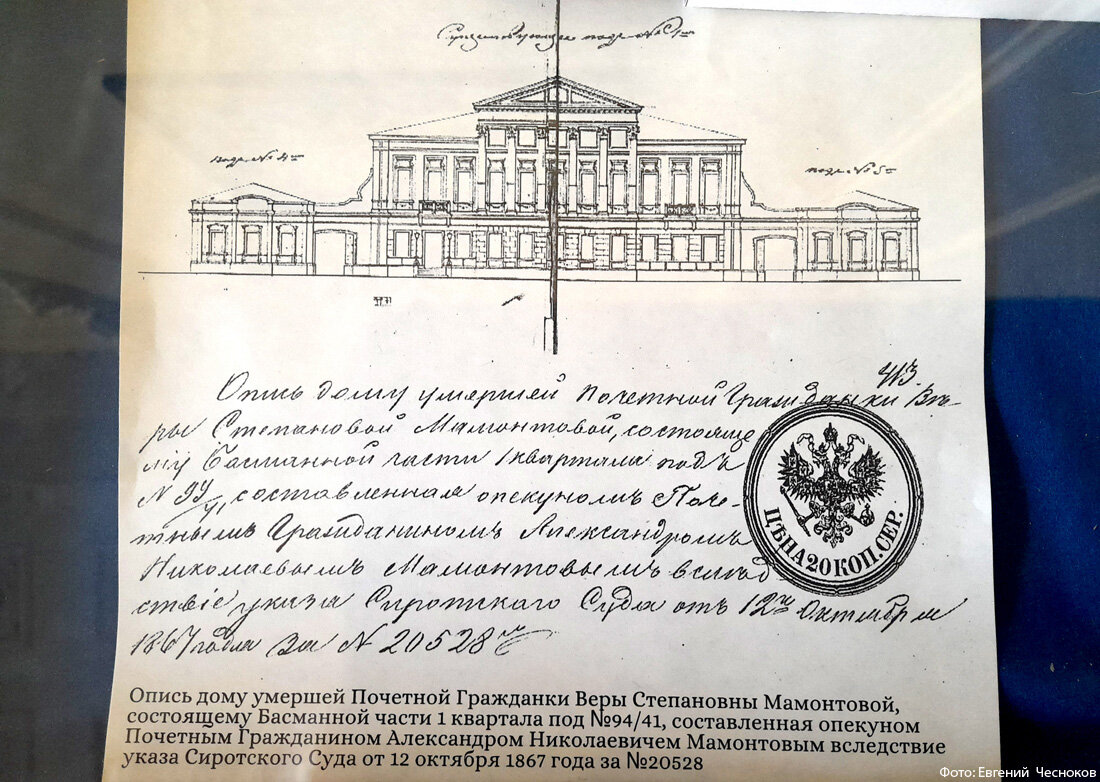 Существующее подъ № 1мъ
подъ № 4мъ
подъ № 5мъ
413.
Опись дому умершей Почетной Гражданки Вѣ-
ры Степановой Мамонтовой, состояще
му Басманной части 1 квартала подъ
N 94/41, составленная опекуномъ Поче-
тнымъ Гражданиномъ Александромъ
Николаевымъ Мамонтовымъ вслѣд
ствіе указа Сиротскаго Суда отъ 12го Октября
1867 года за N 20528мъ
ЦѢНА 20 КОП. СЕР.
Опись дому умершей Почетной Гражданки Веры Степановны Мамонтовой,
состоящему Басманной части 1 квартала под №94/41, составленная опекуном
Почетным Гражданином Александром Николаевичем Мамонтовым вследствие
указа Сиротского Суда от 12 октября 1867 года за №20528
Фото: Евгений Чесноков